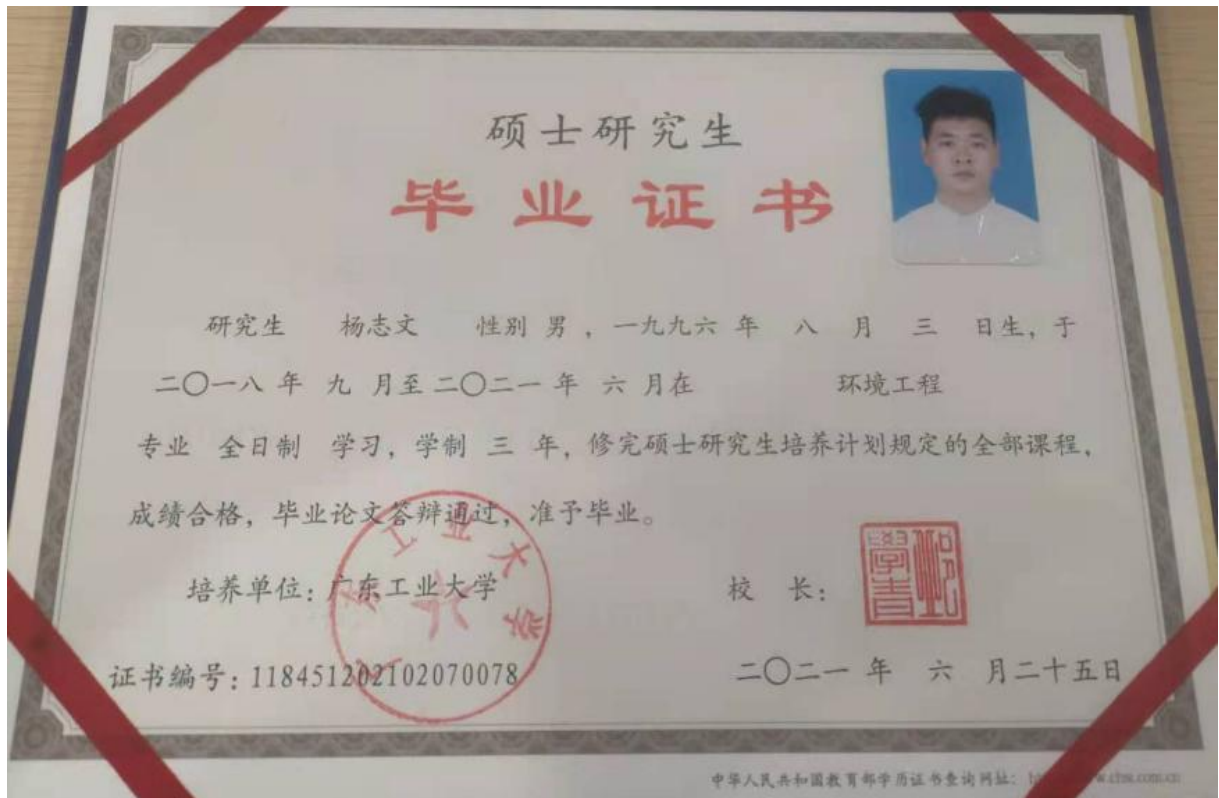 硕士研究生
毕业证书
研究生 杨志文 性别 男，一九九六 年 八 月 三 日生，于
二〇一八 年 九 月至 二〇二一 年 六 月在 环境工程
专业 全日制 学习，学制 三 年，修完硕士研究生培养计划规定的全部课程，
成绩合格，毕业论文答辩通过，准予毕业。
工业大学
培养单位：广东工业大学
校 长：
证书编号：118451202102070078
二〇二一 年 六 月二十五日
中华人民共和国教育部学历证书查询网址：